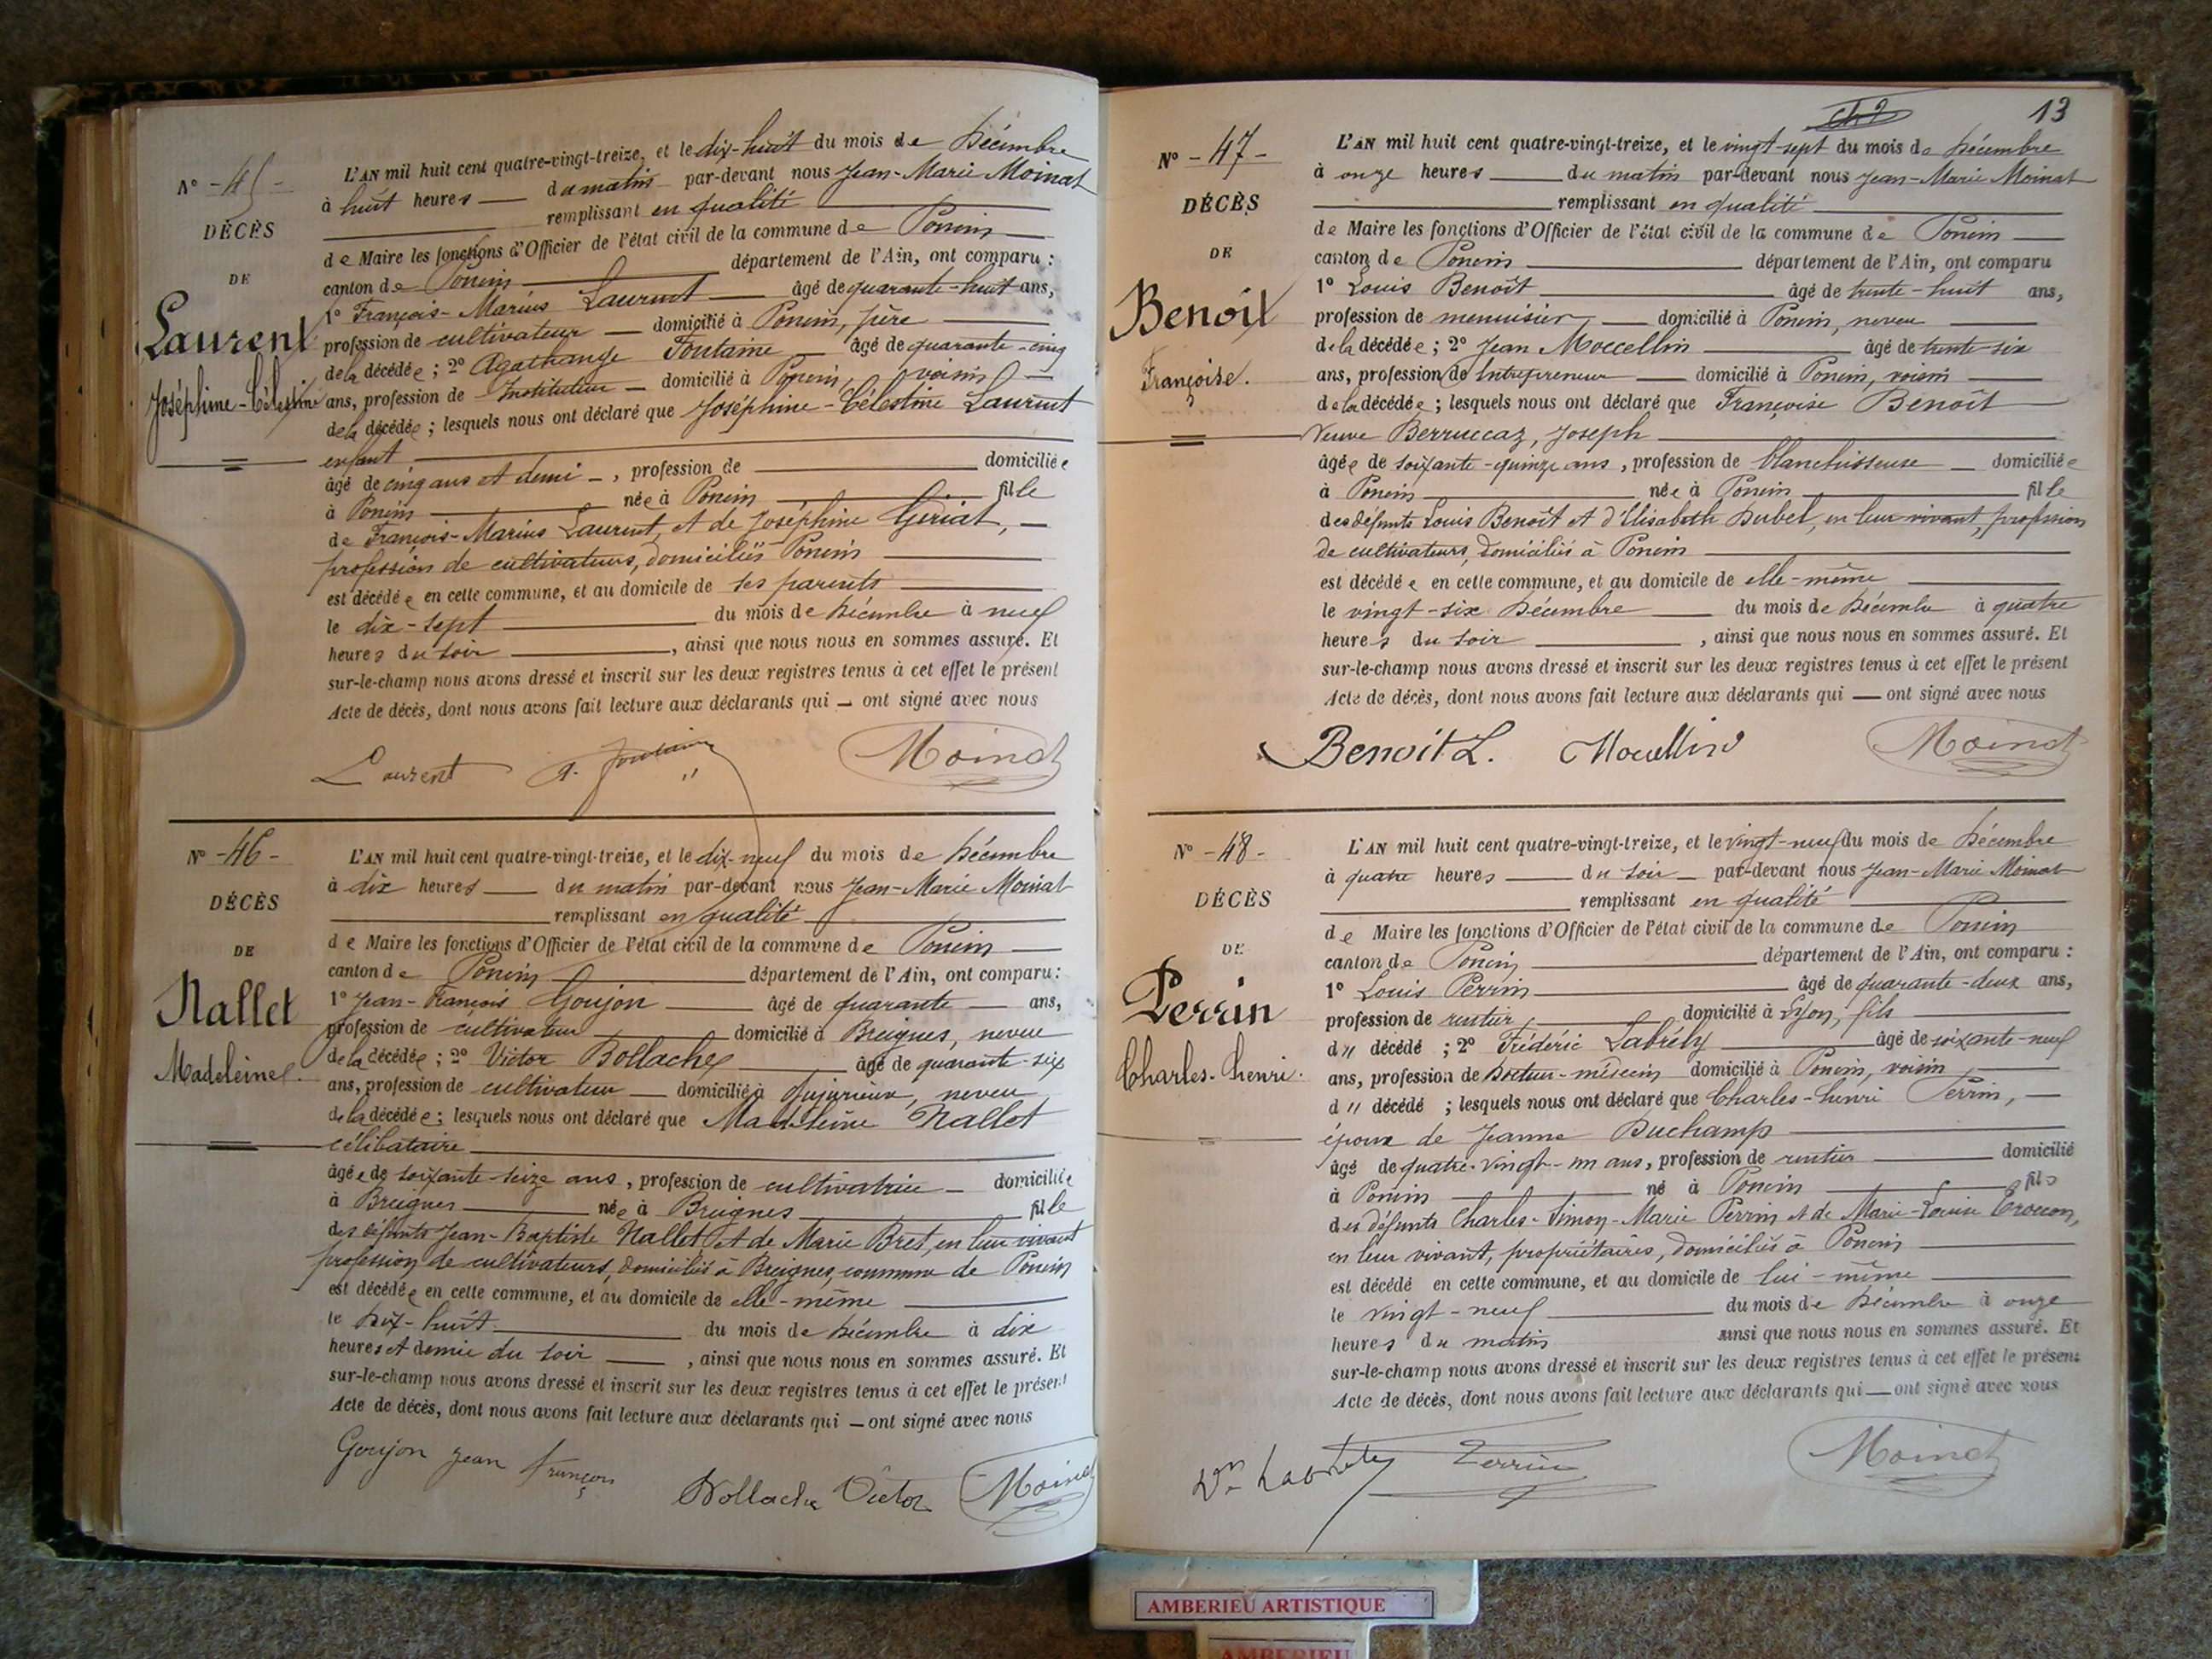 N° - 45 -
DÉCÈS
DE
Laurent
Joséphine-Célestine
L'AN mil huit cent quatre-vingt-treize, et le dix-huit du mois de Décembre
à huit heures du matin par-devant nous Jean-Marie Moinat
remplissant en qualité
de Maire les fonctions d'Officier de l'état civil de la commune de Poncin
canton de Poncin département de l'Ain, ont comparu :
1° François-Marius Laurent âgé de quarante-huit ans,
profession de cultivateur domicilié à Poncin, père
de la décédée ; 2° Agathange Fontaine âgé de quarante-cinq
ans, profession de Instituteur domicilié à Poncin, voisin
de la décédée ; lesquels nous ont déclaré que Joséphine-Célestine Laurent
enfant
âgé de cinq ans et demi, profession de domiciliée
à Poncin née à Poncin fille
de François-Marius Laurent, et de Joséphine Gériat,
profession de cultivateurs, domiciliés Poncin
est décédée en cette commune, et au domicile de ses parents
le dix-sept du mois de Décembre à neuf
heures du soir, ainsi que nous nous en sommes assuré. Et
sur-le-champ nous avons dressé et inscrit sur les deux registres tenus à cet effet le présent
Acte de décès, dont nous avons fait lecture aux déclarants qui — ont signé avec nous
Laurent A. Fontaine Moinat
N° - 46 -
DÉCÈS
DE
Nallet
Madeleine
L'AN mil huit cent quatre-vingt-treize, et le dix-neuf du mois de Décembre
à dix heures du matin par-devant nous Jean-Marie Moinat
remplissant en qualité
de Maire les fonctions d'Officier de l'état civil de la commune de Poncin
canton de Poncin département de l'Ain, ont comparu :
1° Jean-François Goujon âgé de quarante ans,
profession de cultivateur domicilié à Breignes, neveu
de la décédée ; 2° Victor Bollache âgé de quarante-six
ans, profession de cultivateur domicilié à Jujurieux, neveu
de la décédée ; lesquels nous ont déclaré que Madeleine Nallet
célibataire
âgée de soixante-seize ans, profession de cultivatrice domiciliée
à Breignes née à Breignes fille
des défunts Jean-Baptiste Nallet et de Marie Bret, en leur vivant
profession de cultivateurs, domiciliés à Breignes, commune de Poncin
est décédée en cette commune, et au domicile de elle-même
le Dix-huit du mois de Décembre à dix
heures et demie du soir, ainsi que nous nous en sommes assuré. Et
sur-le-champ nous avons dressé et inscrit sur les deux registres tenus à cet effet le présent
Acte de décès, dont nous avons fait lecture aux déclarants qui — ont signé avec nous
Goujon Jean François Bollache Victor Moinat
13
N° - 47 -
DÉCÈS
DE
Benoît
Françoise.
L'AN mil huit cent quatre-vingt-treize, et le vingt-sept du mois de Décembre
à onze heures du matin par-devant nous Jean-Marie Moinat
remplissant en qualité
de Maire les fonctions d'Officier de l'état civil de la commune de Poncin
canton de Poncin département de l'Ain, ont comparu
1° Louis Benoît âgé de trente-huit ans,
profession de menuisier domicilié à Poncin, neveu
de la décédée ; 2° Jean Moccellin âgé de trente-six
ans, profession de Entrepreneur domicilié à Poncin, voisin
de la décédée ; lesquels nous ont déclaré que Françoise Benoît
Veuve Berruccaz, Joseph
âgée de soixante-quinze ans, profession de blanchisseuse domiciliée
à Poncin née à Poncin fille
des défunts Louis Benoît et d'Elisabeth Dubel, en leur vivant, profession
de cultivateurs, domiciliés à Poncin
est décédée en cette commune, et au domicile de elle-même
le vingt-six Décembre du mois de Décembre à quatre
heures du soir, ainsi que nous nous en sommes assuré. Et
sur-le-champ nous avons dressé et inscrit sur les deux registres tenus à cet effet le présent
Acte de décès, dont nous avons fait lecture aux déclarants qui — ont signé avec nous
Benoit L. Mocellin Moinat
N° - 48 -
DÉCÈS
DE
Perrin
Charles-Henri.
L'AN mil huit cent quatre-vingt-treize, et le vingt-neuf du mois de Décembre
à quatre heures du soir par-devant nous Jean-Marie Moinat
remplissant en qualité
de Maire les fonctions d'Officier de l'état civil de la commune de Poncin
canton de Poncin département de l'Ain, ont comparu :
1° Louis Perrin âgé de quarante-deux ans,
profession de rentier domicilié à Lyon, fils
du décédé ; 2° Frédéric Labrély âgé de soixante-neuf
ans, profession de Docteur-médecin domicilié à Poncin, voisin
du décédé ; lesquels nous ont déclaré que Charles-Henri Perrin,
époux de Jeanne Duchamp
âgé de quatre-vingt-un ans, profession de rentier domicilié
à Poncin né à Poncin fils
des défunts Charles-Simon-Marie Perrin et de Marie-Louise Croccon,
en leur vivant, propriétaires, domiciliés à Poncin
est décédé en cette commune, et au domicile de lui-même
le vingt-neuf du mois de Décembre à onze
heures du matin ainsi que nous nous en sommes assuré. Et
sur-le-champ nous avons dressé et inscrit sur les deux registres tenus à cet effet le présent
Acte de décès, dont nous avons fait lecture aux déclarants qui — ont signé avec nous
Dr Labrély Perrin Moinat
AMBERIEU ARTISTIQUE
AMBERIEU